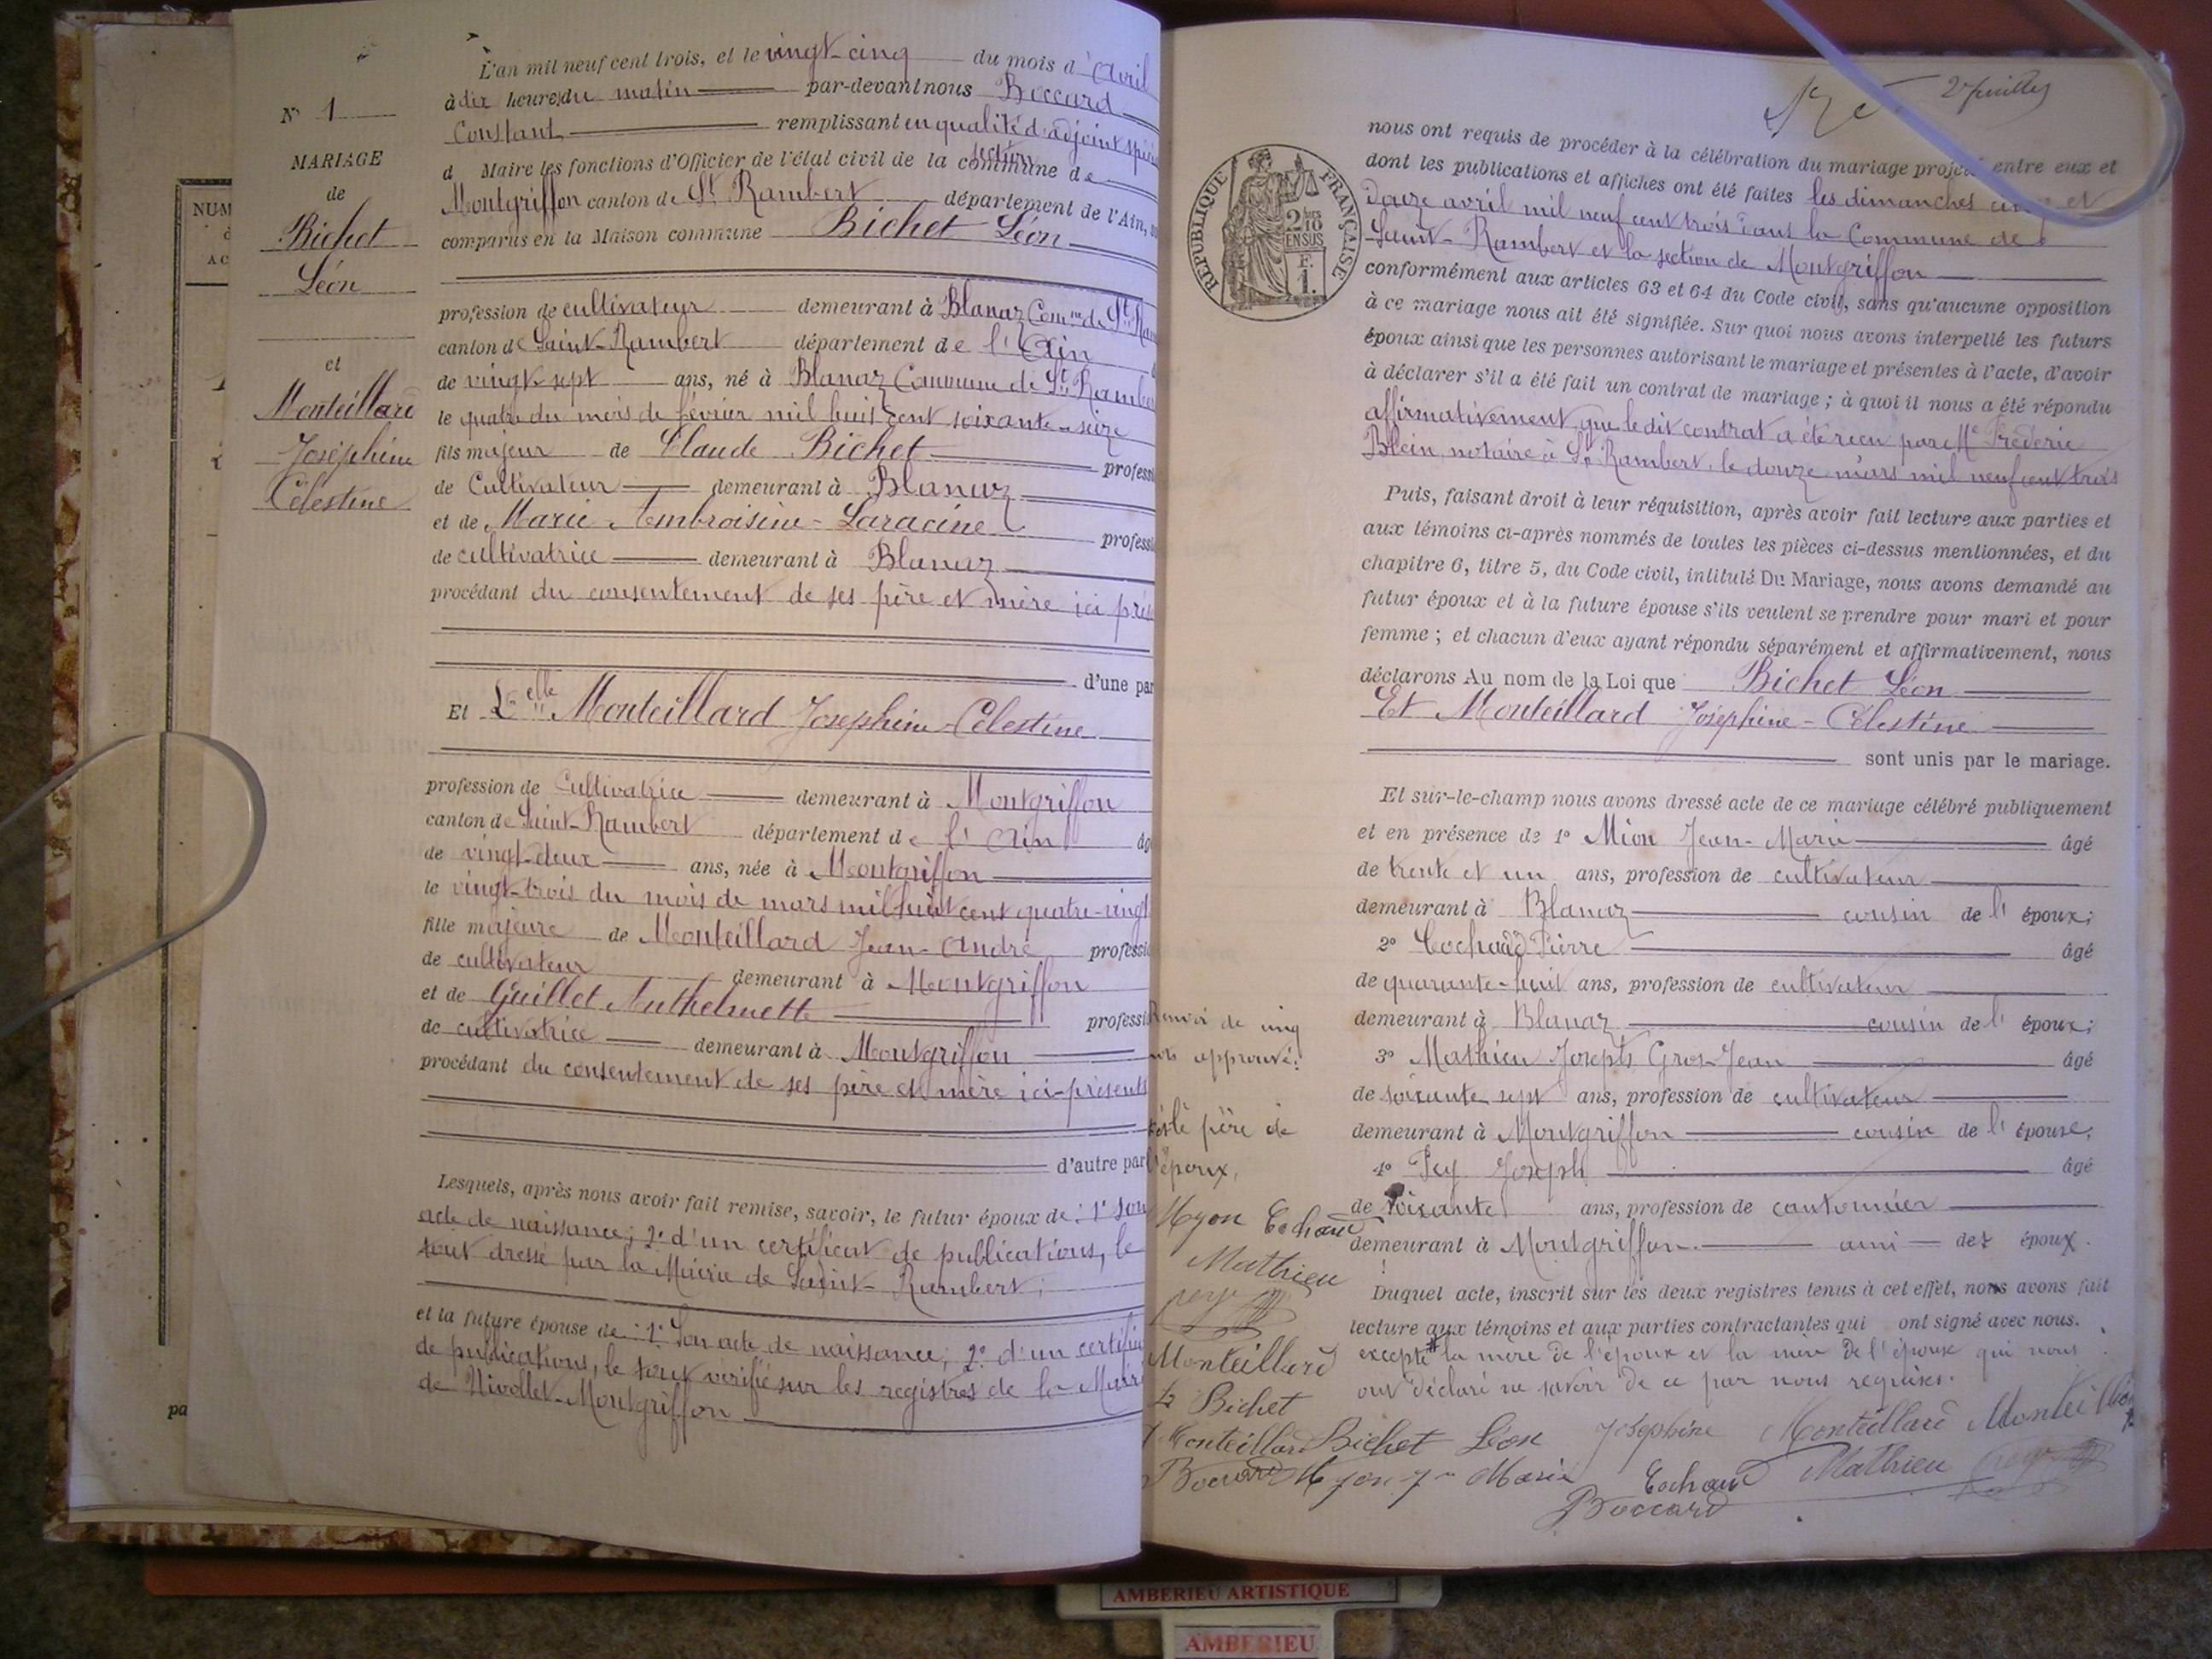 NUM
AC
pa
N° 1
MARIAGE
de
Bichet
Léon
et
Monteillard
Joséphine
Célestine
L'an mil neuf cent trois, et le vingt-cinq du mois d'Avril
à dix heures du matin par-devant nous Boccard
Constant, remplissant en qualité d'adjoint spécial
d Maire les fonctions d'Officier de l'état civil de la commune de
section
Montgriffon canton de St Rambert département de l'Ain,
comparus en la Maison commune Bichet Léon
profession de cultivateur demeurant à Blanaz Comne de St Ram
canton de Saint-Rambert département de l'Ain
de vingt-sept ans, né à Blanaz Commune de St Rambe
le quatre du mois de février mil huit cent soixante-seize
fils majeur de Claude Bichet professi
de Cultivateur demeurant à Blanaz
et de Marie Ambroisine Laracine professi
de cultivatrice demeurant à Blanaz
procédant du consentement de ses père et mère ici prés
d'une par
Et Delle Monteillard Joséphine-Célestine
profession de Cultivatrice demeurant à Montgriffon
canton de Saint-Rambert département de l'Ain âg
de vingt-deux ans, née à Montgriffon
le vingt-trois du mois de mars mil huit cent quatre-vingt
fille majeure de Monteillard Jean-André professi
de cultivateur demeurant à Montgriffon
et de Guillet Anthelmette professi
de cultivatrice demeurant à Montgriffon
procédant du consentement de ses père et mère ici-présents
d'autre par
Lesquels, après nous avoir fait remise, savoir, le futur époux de : 1° son
acte de naissance ; 2° d'un certificat de publications, le
tout dressé par la Mairie de Saint-Rambert ;
et la future épouse de : 1° Son acte de naissance ; 2° d'un certific
de publications, le tout vérifié sur les registres de la Mairi
de Nivollet-Montgriffon
2e feuillet
RÉPUBLIQUE FRANÇAISE
2/10
EN SUS
F.
1.
nous ont requis de procéder à la célébration du mariage projeté entre eux et
dont les publications et affiches ont été faites les dimanches cinq et
douze avril mil neuf cent trois dans la Commune de
Saint-Rambert et la section de Montgriffon
conformément aux articles 63 et 64 du Code civil, sans qu'aucune opposition
à ce mariage nous ait été signifiée. Sur quoi nous avons interpellé les futurs
époux ainsi que les personnes autorisant le mariage et présentes à l'acte, d'avoir
à déclarer s'il a été fait un contrat de mariage ; à quoi il nous a été répondu
affirmativement que le dit contrat a été reçu par Me Fréderic
Blein, notaire à St Rambert, le douze mars mil neuf cent trois
Puis, faisant droit à leur réquisition, après avoir fait lecture aux parties et
aux témoins ci-après nommés de toutes les pièces ci-dessus mentionnées, et du
chapitre 6, titre 5, du Code civil, intitulé Du Mariage, nous avons demandé au
futur époux et à la future épouse s'ils veulent se prendre pour mari et pour
femme ; et chacun d'eux ayant répondu séparément et affirmativement, nous
déclarons Au nom de la Loi que Bichet Léon
Et Monteillard Joséphine-Célestine
sont unis par le mariage.
Et sur-le-champ nous avons dressé acte de ce mariage célébré publiquement
et en présence de 1° Mion Jean-Marie âgé
de trente et un ans, profession de cultivateur
demeurant à Blanaz cousin de l'époux ;
2° Cochaud Pierre âgé
de quarante-huit ans, profession de cultivateur
demeurant à Blanaz cousin de l'époux ;
3° Mathieu Joseph Gros-Jean âgé
de soixante sept ans, profession de cultivateur
demeurant à Montgriffon cousin de l'épouse ;
4° Pey Joseph âgé
de soixante ans, profession de cantonnier
demeurant à Montgriffon ami des époux.
Duquel acte, inscrit sur les deux registres tenus à cet effet, nous avons fait
lecture aux témoins et aux parties contractantes qui ont signé avec nous.
excepté la mère de l'époux et la mère de l'épouse qui nous
ont déclaré ne savoir de ce par nous requises.
Renvoi de cinq
mots approuvé :
le père de
l'époux,
Myon Cochaud
Mathieu
peye
Monteillard
Bichet
Monteillard Bichet Léon Joséphine Monteillard Monteillard
Boccard Myon Jn Marie Cochaud Mathieu peye
Boccard
AMBERIEU ARTISTIQUE
AMBERIEU